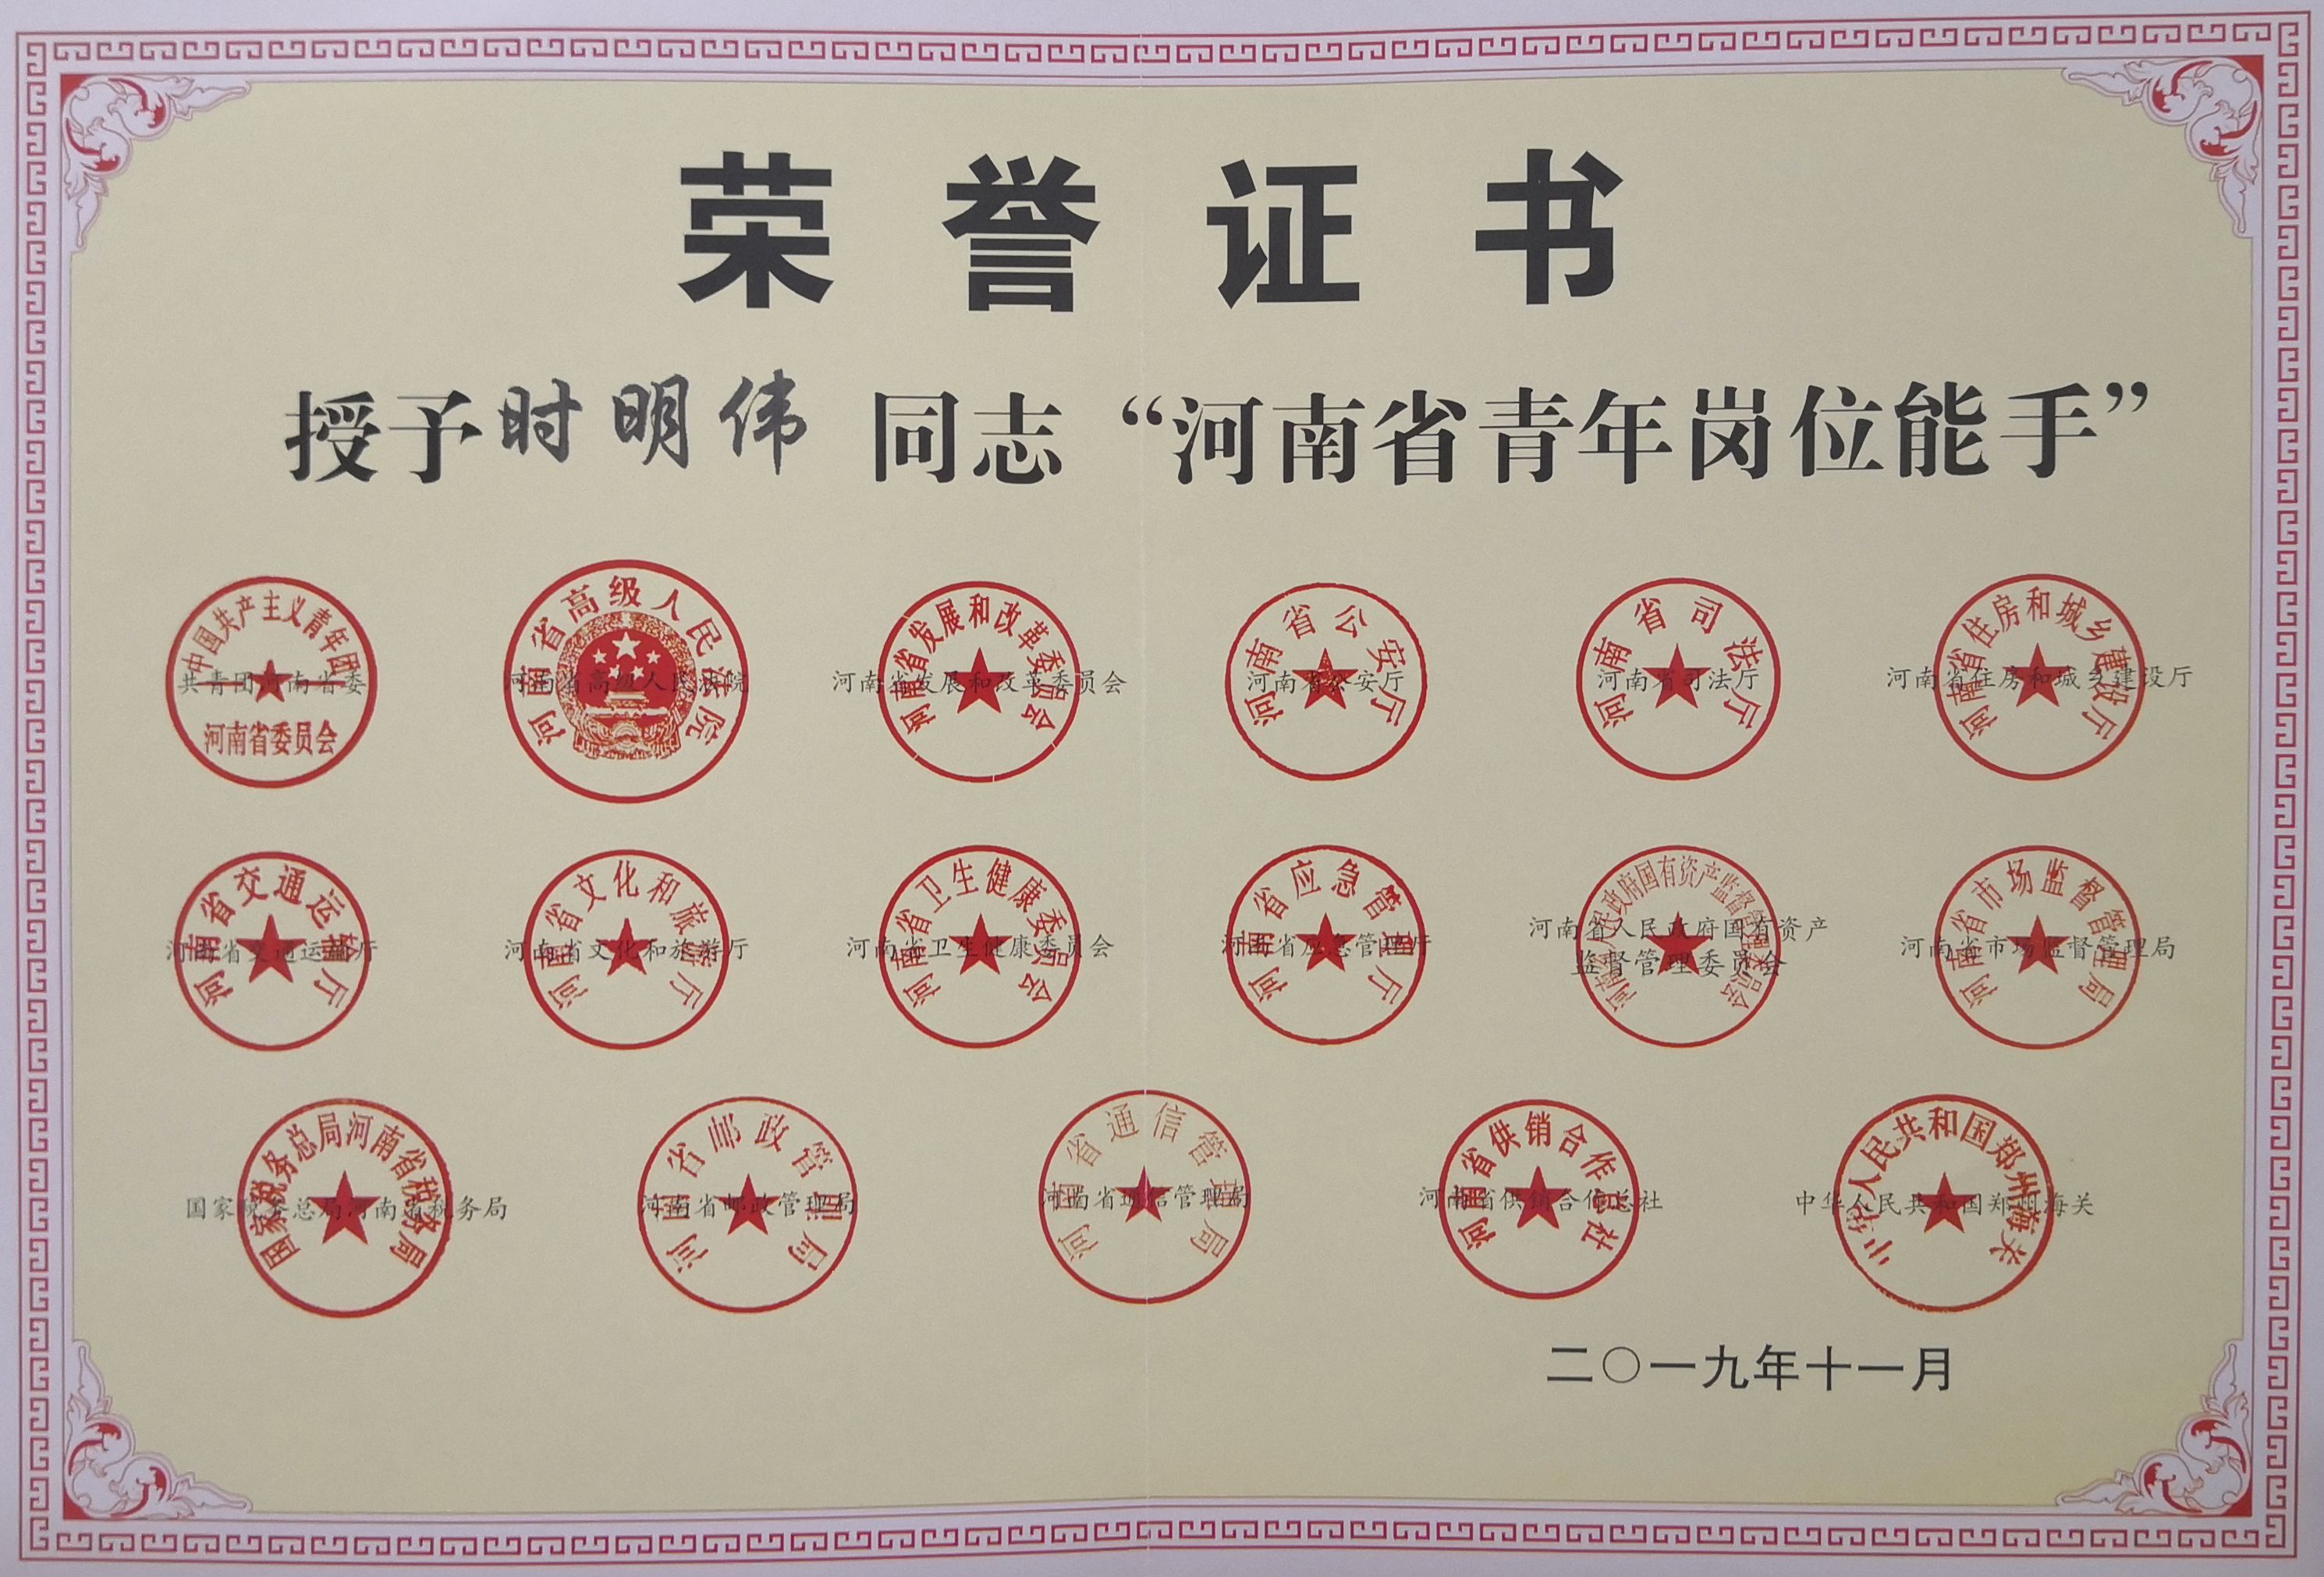 荣誉证书
授予时明伟 同志“河南省青年岗位能手”
中国共产主义青年团
共青团河南省委
河南省委员会
河南省高级人民法院
河南省高级人民法院
河南省发展和改革委员会
河南省发展和改革委员会
河南省公安厅
河南省公安厅
河南省司法厅
河南省司法厅
河南省住房和城乡建设厅
河南省住房和城乡建设厅
河南省交通运输厅
河南省交通运输厅
河南省文化和旅游厅
河南省文化和旅游厅
河南省卫生健康委员会
河南省卫生健康委员会
河南省应急管理厅
河南省应急管理厅
河南省人民政府国有资产监督管理委员会
河南省人民政府国有资产
监督管理委员会
河南省市场监督管理局
河南省市场监督管理局
国家税务总局河南省税务局
国家税务总局河南省税务局
河南省邮政管理局
河南省邮政管理局
河南省通信管理局
河南省通信管理局
河南省供销合作总社
河南省供销合作总社
中华人民共和国郑州海关
中华人民共和国郑州海关
二〇一九年十一月